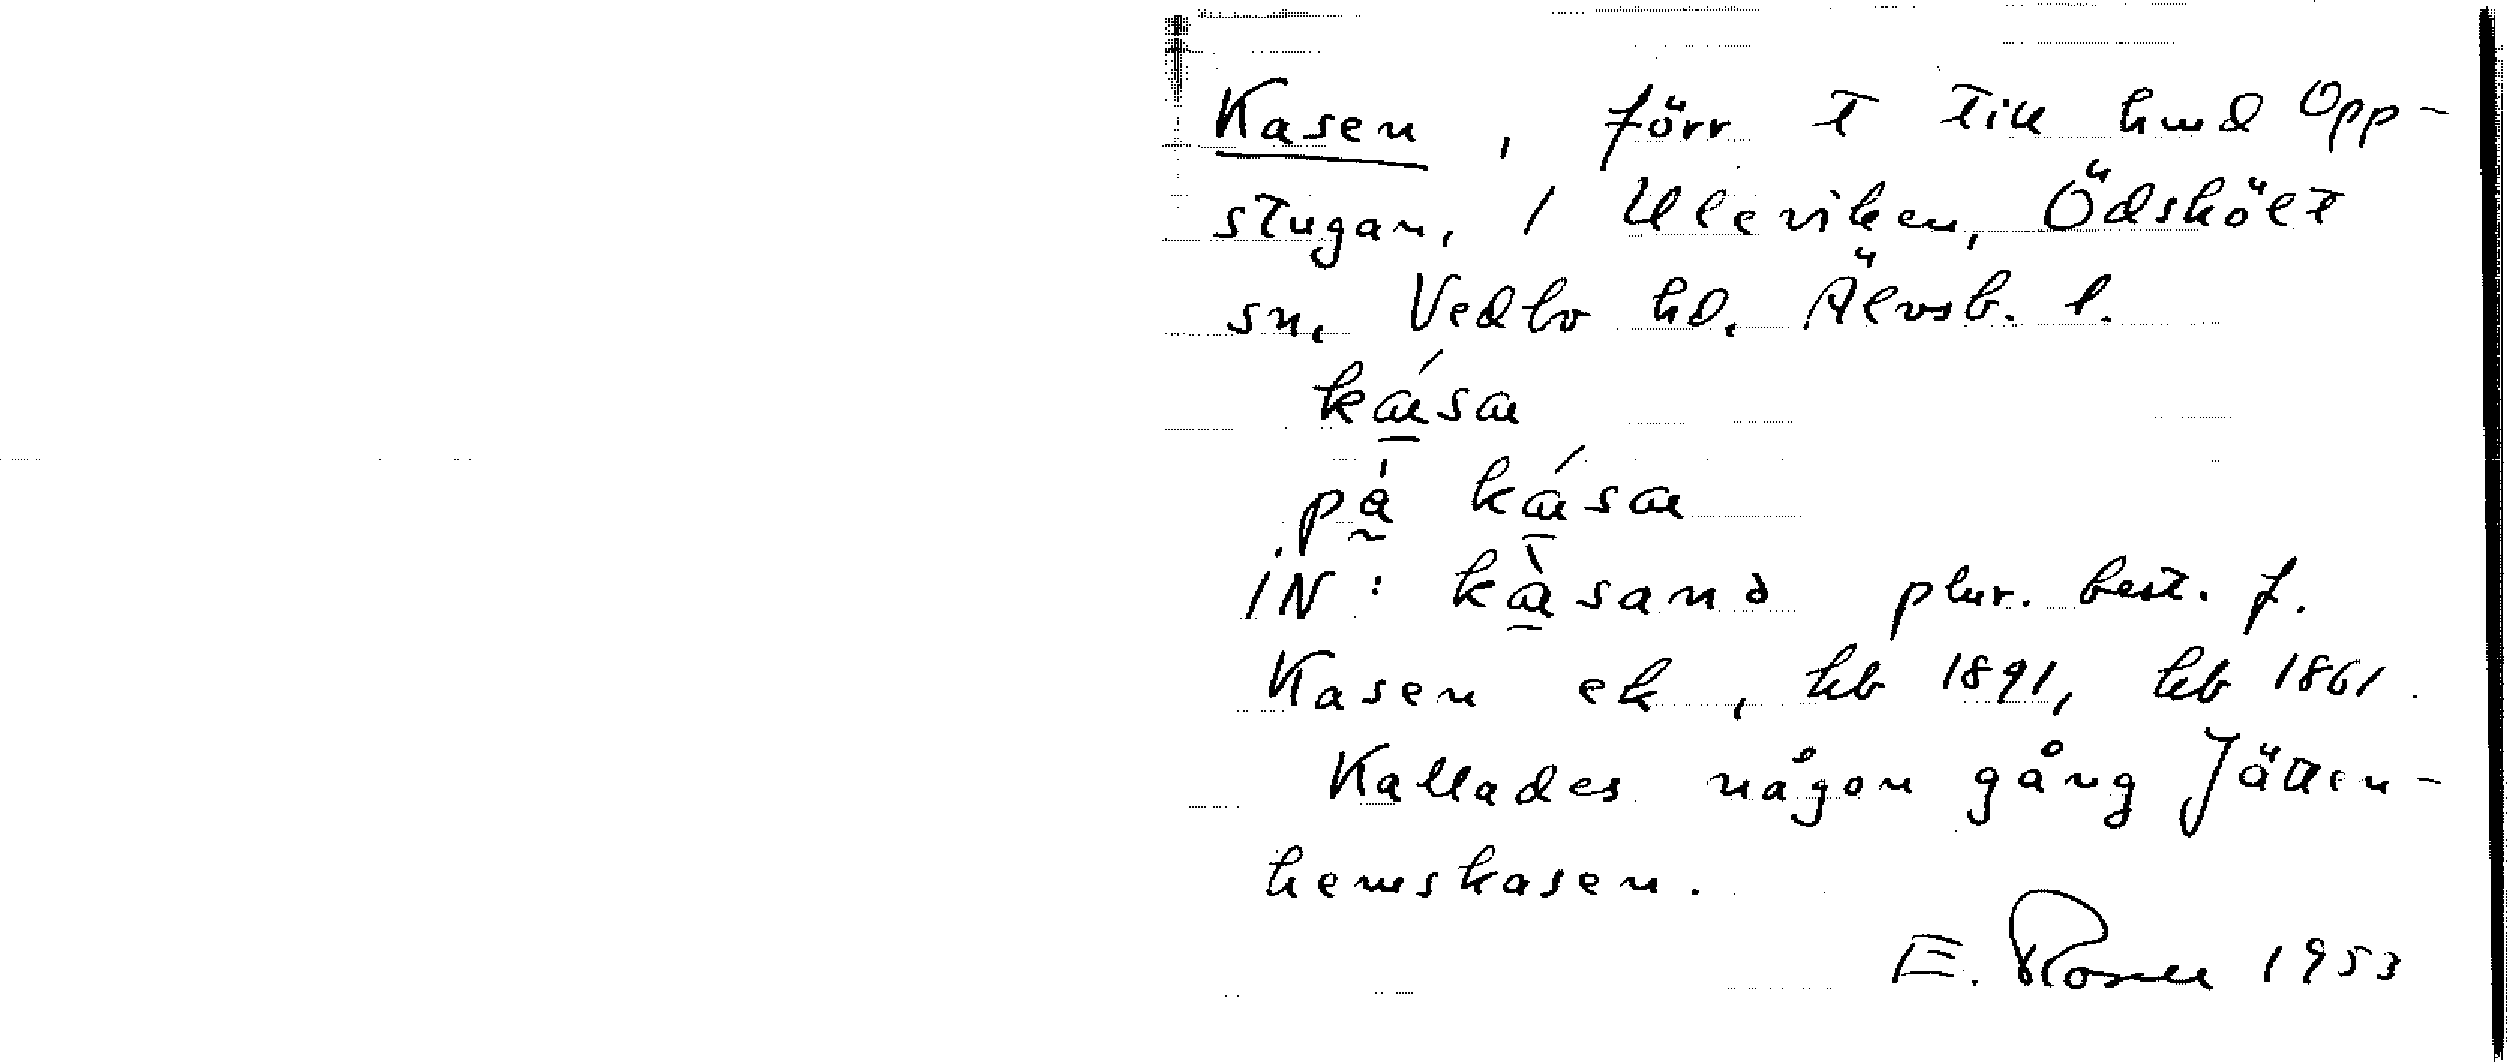 Kasen, förr t till hmd Opp-
stugan, 1 Uleviken, Ödskölt
sn, Vedbo hd. Älvsb. l.
ká̱sa
på ká̱sa
IN: kà̱sanə plur. best. f.
Kasen ek, hb 1891, hb 1861.
Kallades någon gång Jätten-
hemskasen.
E. Rosell 1953